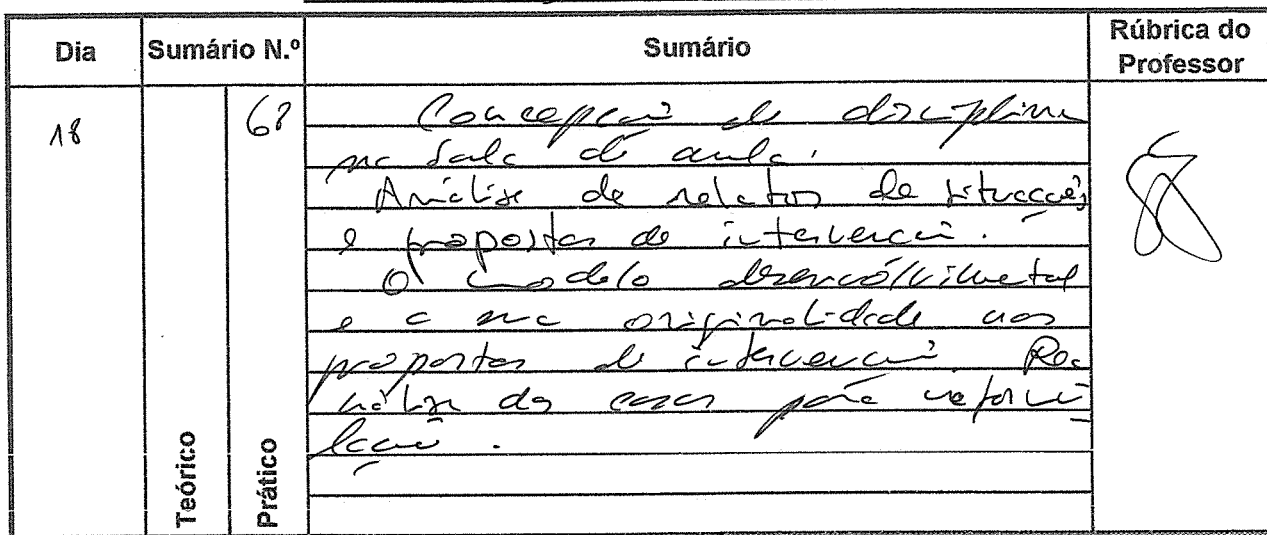 Dia Sumário N.º Sumário Rúbrica do Professor
18
Concepção de disciplina
na sala de aula.
Análise de relatos de situações
e propostas de intervenção.
O modelo desenvolvimental
e a sua originalidade nas
propostas de intervenção. Rea
nálise dos casos para reformu
lação.
Teórico Prático